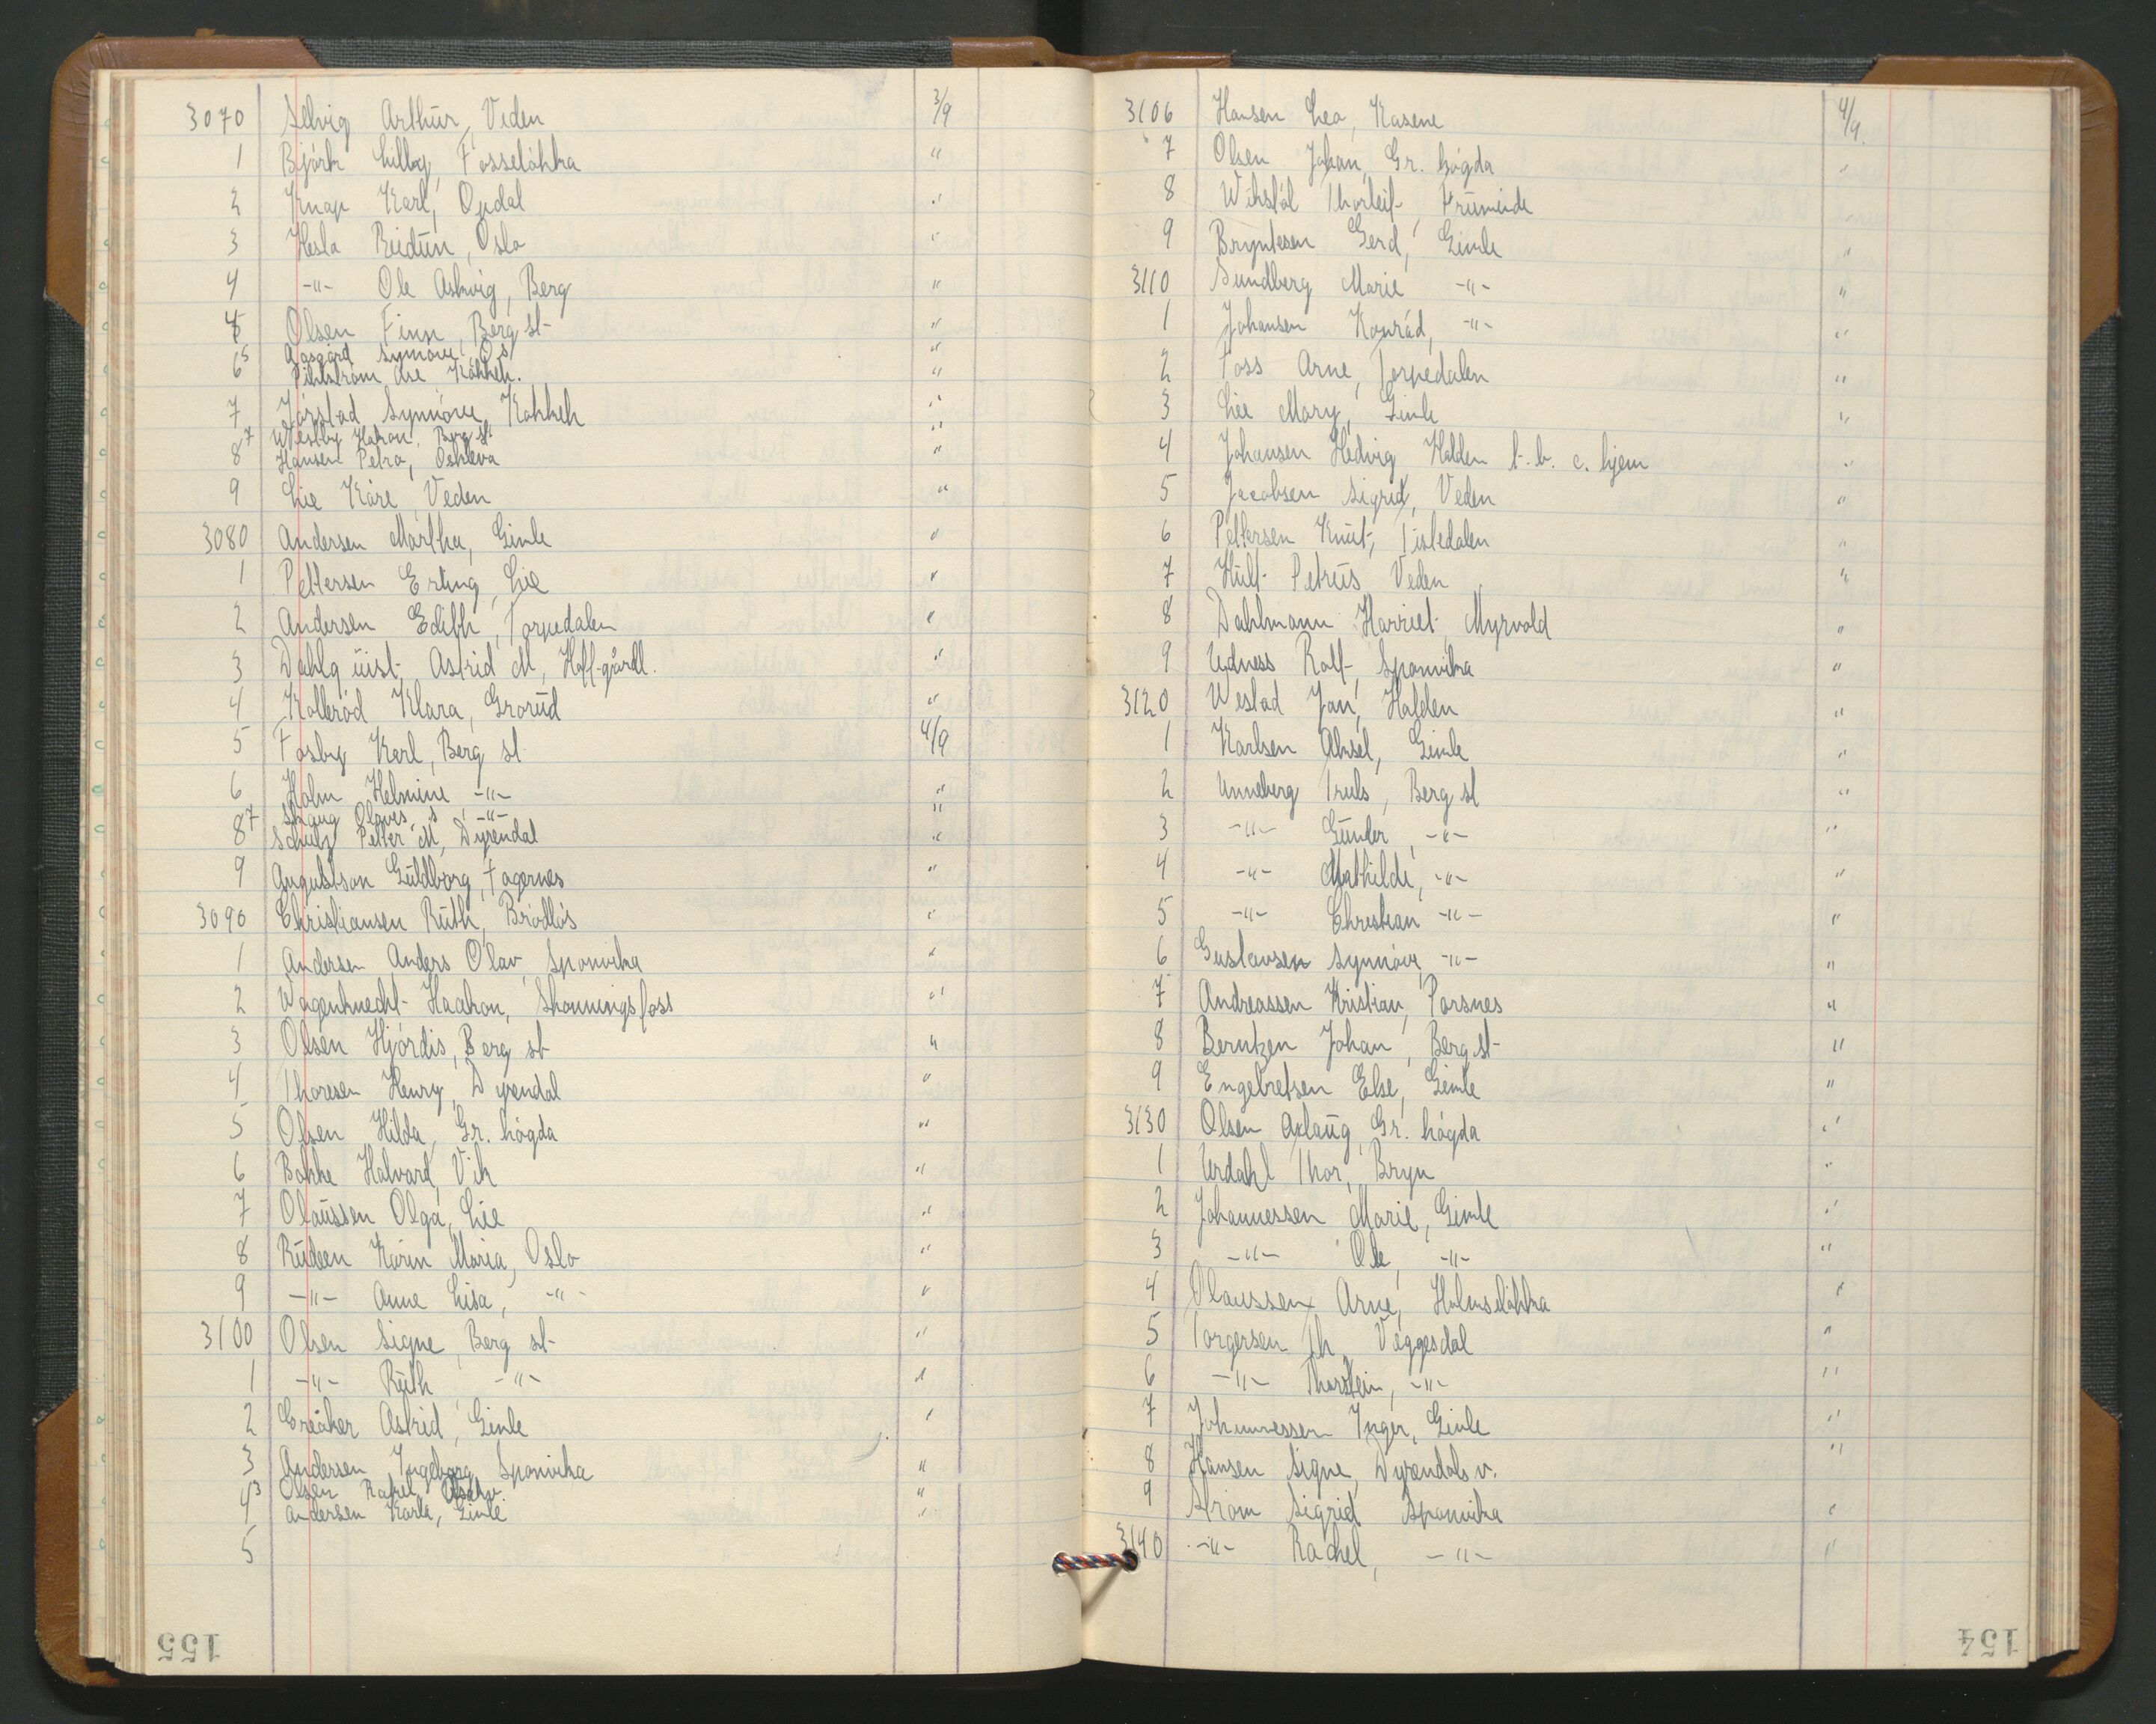 3070 Selvig Arthur, Veden 3/9
1 Björk Lilly, Fosseløkka "
2 Knap Karl, Opdal "
3 Hesla Reidun, Oslo "
4 -"- Ole Askvig, Berg "
Olsen Finn, Berg st "
5 Aasgård Synnøve, Os "
6 Pihlstrøm Åse Kåkkeh. "
7 Jørstad Synnøve, Kåkkeh "
7 Westby Håkon, Berg st "
8 Hansen Petra, Oskleva "
9 Lie Kåre, Veden "
3080 Andersen Martha, Gimle "
1 Pettersen Erling, Lie "
2 Andersen Edith, Torpedalen "
3 Dahlquist Astrid M, Hoff-gårdl. "
4 Kollerød Klara, Grorud "
5 Fosby Karl, Berg st 4/9
6 Holm Helmine, -"- "
7 Olaves s, -"- "
8 Schulz Petter M, Dyrendal "
9 Augustson Guldborg, Fagernes "
3090 Christiansen Ruth, Brødløs "
1 Andersen Anders Olav, Sponvika "
2 Wagenknecht Haakon, Skonningsfoss "
3 Olsen Hjørdis, Berg st "
4 Thoresen Henry, Dyrendal "
5 Olsen Hilda, Gr. høgda "
6 Bakke Halvard, Vik "
7 Olaussen Olga, Lie "
8 Rudeen Karin Maria, Oslo "
9 -"- Anne Lisa, -"- "
3100 Olsen Signe, Berg st "
1 -"- Ruth -"- "
2 Greåker Astrid, Gimle "
3 Andersen Ingeborg, Sponvika "
3 Olsen "
4 Andersen Karla, Gimle "
5
155
3106 Hansen Lea, Kasene 4/9.
7 Olsen Johan, Gr. høgda "
8 Wikstøl Thorleif, "
9 Bryntesen Gerd, Gimle "
3110 Sundberg Marie -"- "
1 Johansen Konrad, -"- "
2 Foss Arne, Torpedalen "
3 Lie Mary, Gimle "
4 Johansen Hedvig, Halden t.b.c. hjem "
5 Jacobsen Sigrid, Veden "
6 Pettersen Knut, Tistedalen "
7 Hult Petrus, Veden "
8 Dahlmann Harriet, Myrvold "
9 Udness Rolf, Sponvika "
3120 Westad Jan, Halden "
1 Karlsen Aksel, Gimle "
2 Unneberg Truls, Berg st "
3 -"- Gunder, -"- "
4 -"- Mathilde, -"- "
5 -"- Christian -"- "
6 Gustavsen Synnøve, -"- "
7 Andreassen Kristian, Porsnes "
8 Berntzen Johan, Berg st "
9 Engebretsen Else, Gimle "
3130 Olsen Aslaug, Gr. høgda "
1 Urdahl Thor, Bryn "
2 Johannessen Marie, Gimle "
3 -"- Ole, -"- "
4 Olaussen Arne, Holmsløkka "
5 Torgersen Th, Veggesdal "
6 -"- Thorstein, -"- "
7 Johannessen Inger, Gimle "
8 Hansen Signe, Dyrendals v. "
9 Strøm Sigrid Sponvika "
3140 -"- Rachel, -"- "
154